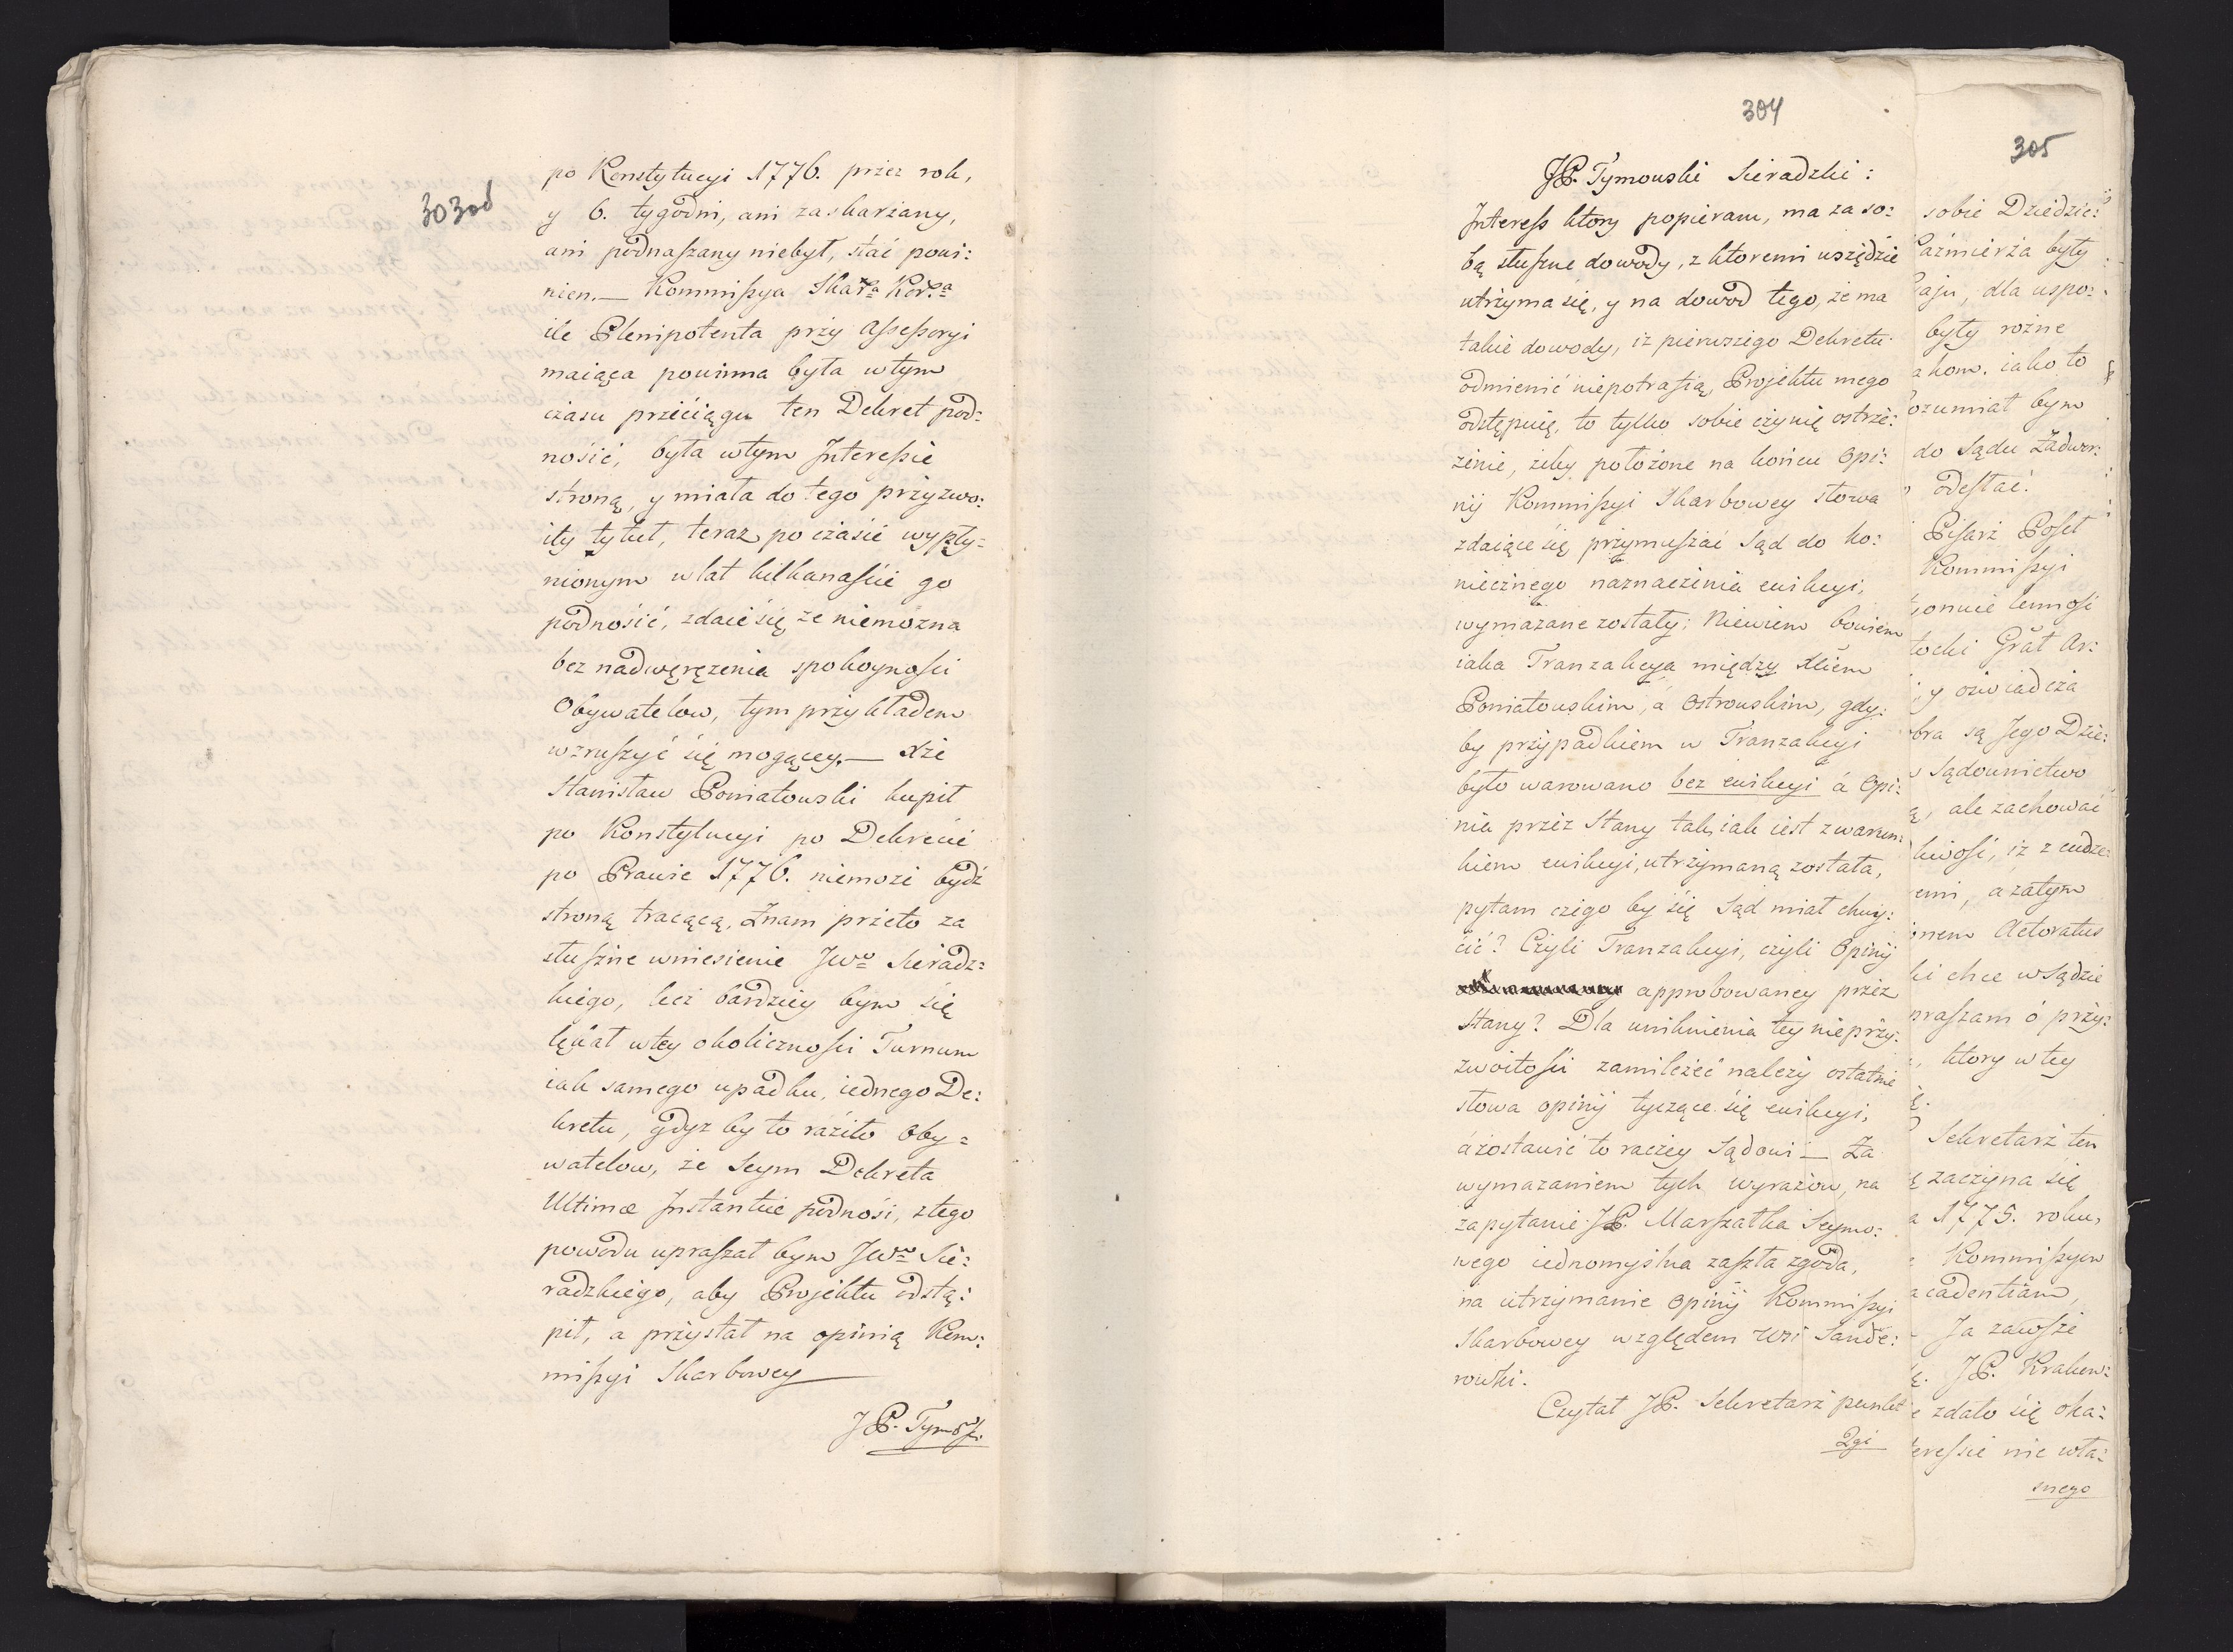 303od
po Konstytucyi 1776. przez rok,
y 6. tygodni, ani zaskarżany,
ani podnaszany niebył, stać powi:
nien. — Kommissya Skar:ª Kor:ª
ile Plenipotenta przy Assessoryi
maiąca powinna była wtym
czasu przeciągu ten Dekret pod:
nosić, była wtym Interessie
stroną, y miała do tego przyzwo:
ity tytuł, teraz po czasie wypły:
nionym wlat kilkanaście go
podnosić, zdaie się że niemożna
bez nadwerężenia spokoyności
Obywatelow, tym przykładem
wzruszyć się mogącey. — Xże
Stanisław Poniatowski kupił
po Konstytucyi po Dekrecie
po Prawie 1776. niemoże bydź
stroną tracącą, Znam przeto za
słuszne wniesienie JWº Sieradz:
kiego, lecz bardziey bym się
lękał wtey okoliczności Turnum
iak samego upadku, iednego De:
kretu, gdyz by to raziło Oby:
watelow, że Seym Dekreta
Ultimæ Instantiæ podnosi, ztego
powodu upraszał bym JWº Sie:
radzkiego, aby Projektu odstą:
pił, a przystał na opinią Kom:
missyi Skarbowey —
JP. Tymoẃs:
304
JP. Tymowski Sieradzki:
Interess ktory popieram, ma za so:
bą słuszne dowody, z ktoremi wszędzie
utrzyma się, y na dowod tego, że ma
takie dowody, iż pierwszego Dekretu
odmienić niepotrafią, Projektu mego
odstępuię, to tylko sobie czynię ostrze:
żenie, żeby położone na końcu Opi:
nij Kommissyi Skarbowey słowa
zdaiące się przymuszać Sąd do ko:
niecznego naznaczenia ewikcyi,
wymazane zostały; Niewiem bowiem
iaka Tranzakcya między Xciem
Poniatowskim, á Ostrowskim, gdy:
by przypadkiem w Tranzakcyi
było warowano bez ewikcyi á Opi:
nia przez Stany tak, iak iest zwarun:
kiem ewikcyi, utrzymaną została,
pytam czego by się Sąd miał chwy:
cić? Czyli Tranzakcyi, czyli Opinij
approbowaney przez
Stany? Dla uniknienia tey nieprzy:
zwoitości zamilczeć należy ostatnie
słowa opinij tyczące się ewikcyi,
á zostawić to raczey Sądowi — Za
wymazaniem tych wyrazow, na
zapytanie JP. Marszałka Seymo:
wego iednomyślna zaszła zgoda,
na utrzymanie opinij Kommissyi
Skarbowey względem Wsi Sande:
rowki.
Czytał JP. Sekretarz punkt
2gi
305
sobie Dziedzic:
Kaźmierza były
aju, dla uspo:
były rożne
akom. iako to
ozumiał bym
do Sądu Zadwor:
odesłać.
Pisarz Poseł
Kommissyi
tocki Grał Ar:
y oświadcza
bra są Jego Dzie:
Sądownictwo
, ale zachować
kwość, iż z cudze:
emi, a zatym
nem Actoratus
ki chce w Sądzie
praszam ó przy:
, ktory wtey
Sekretarz ten
zaczyna się
a 1775. roku,
Kommissyow
acadentiam,
Ja zawsze
JP. Krakow:
e zdało się oka:
teressie nie wła:
snego